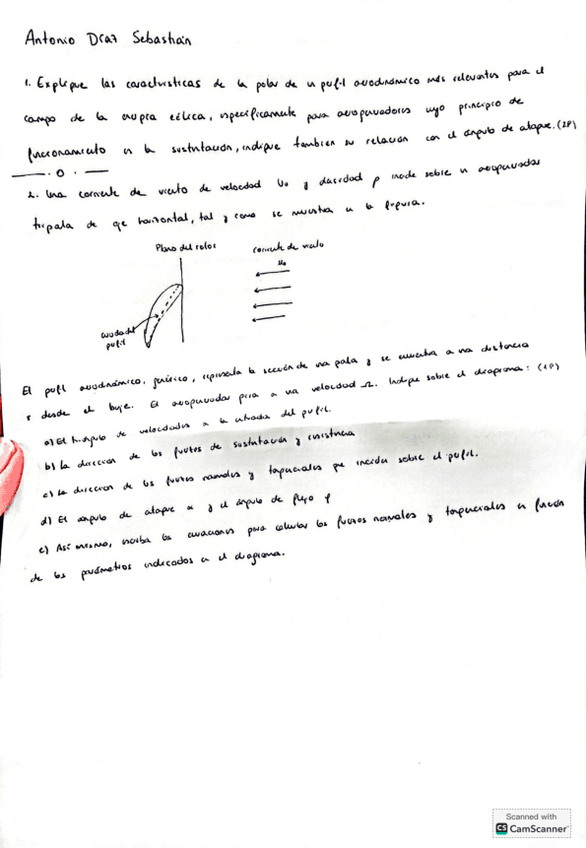 Antonio Díaz Sebastián
1. Explique las características de la polar de un perfil aerodinámico más relevantes para el
campo de la energía eólica, específicamente para aeroogeneradores cuyo principio de
funcionamiento es la sustentación, indique también su relación con el ángulo de ataque. (2P)
2. Una corriente de viento de velocidad U₀ y densidad ρ incide sobre un aerogenerador
tripala de eje horizontal, tal y como se muestra en la figura.
Plano del rotor
corriente de viento
U₀
cuerda del
perfil
El perfil aerodinámico, genérico, representa la sección de una pala y se encuentra a una distancia
r desde el buje. El aerogenerador gira a una velocidad Ω. Indique sobre el diagrama: (1P)
a) El triángulo de velocidades a la entrada del perfil.
b) La dirección de las fuerzas de sustentación y resistencia
c) La dirección de las fuerzas normales y tangenciales que inciden sobre el perfil.
d) El ángulo de ataque α y el ángulo de flujo φ
e) Así mismo, escriba las ecuaciones para calcular las fuerzas normales y tangenciales en función
de los parámetros indicados en el diagrama.
Scanned with
CS CamScanner